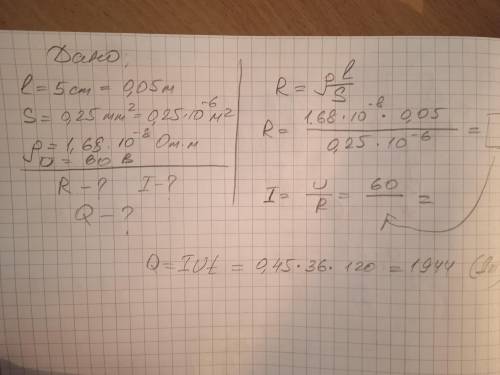 Дано:
l = 5 cm = 0,05 м
S = 0,25 мм² = 0,25·10⁻⁶ м²
ρ = 1,68·10⁻⁸ Ом·м
U = 60 В
R - ? I - ?
Q - ?
R = ρ l/S
R = 1,68·10⁻⁸ · 0,05 / 0,25·10⁻⁶ =
I = U/R = 60/ =
Q = IUt = 0,45·36·120 = 1944